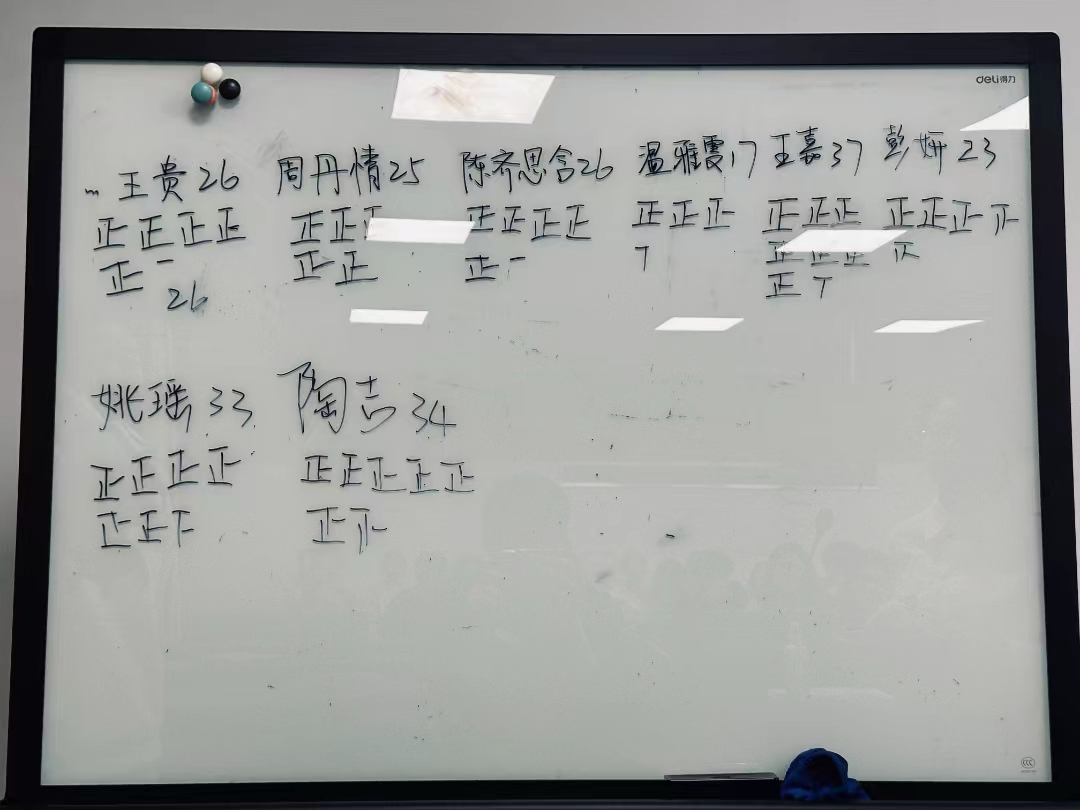 deli得力
王贵26 周丹情25 陈齐思含26 温雅雯17 王嘉37 彭妍23
正正正正 正正正 正正正正 正正正 正正正 正正正
正一 正正 正一 正正正
26 正
姚瑶33 陶吉34
正正正正 正正正正正
正正下 正